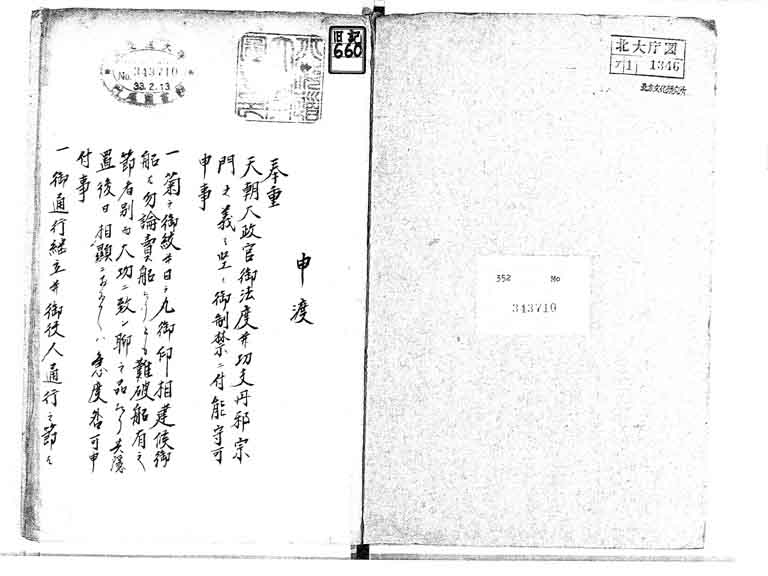 北大庁図
1346
北方文化研究所
352 No
343710
旧記
660
No. 343710
33.2.13
申渡
奉重
天朝大政官御法度并切支丹邪宗
門之義ハ堅ク御制禁ニ付能守可
申事
一菊之御紋并日之丸御印相建候御
船は勿論賣船たりとも難破船有之
節者別而大切ニ致シ聊之品たり共隠
置後日相顕ニおゐてハ急度咎可申
付事
一御通行継立并御役人通行之節は